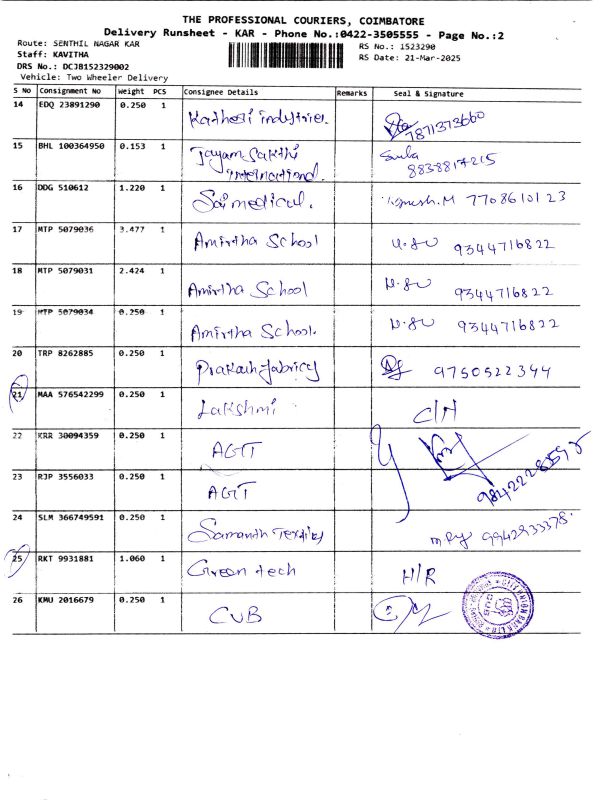 THE PROFESSIONAL COURIERS, COIMBATORE
Delivery Runsheet - KAR - Phone No.:0422-3505555 - Page No.:2
Route: SENTHIL NAGAR KAR
RS No.: 1523290
Staff: KAVITHA
RS Date: 21-Mar-2025
DRS No.: DCJB152329002
Vehicle: Two Wheeler Delivery
S No Consignment No Weight PCS Consignee Details Remarks Seal & Signature
14 EDQ 23891290 0.250 1 industries. 7871373660
15 BHL 100364950 0.153 1 Jayam Sakthi international. 8838817215
16 DDG 510612 1.220 1 Sai medical. M 7708610123
17 MTP 5079036 3.477 1 Amirtha School 9344716822
18 MTP 5079031 2.424 1 Amirtha School 9344716822
19 MTP 5079034 0.250 1 Amirtha School. 9344716822
20 TRP 8262885 0.250 1 Prakash fabrics 9750522344
21 MAA 576542299 0.250 1 Lakshmi C/H
22 KRR 30094359 0.250 1 AGT
23 RJP 3556033 0.250 1 AGT
24 SLM 366749591 0.250 1 Samanth Textiles 9942933378.
25 RKT 9931881 1.060 1 Green tech H/R
26 KMU 2016679 0.250 1 CUB